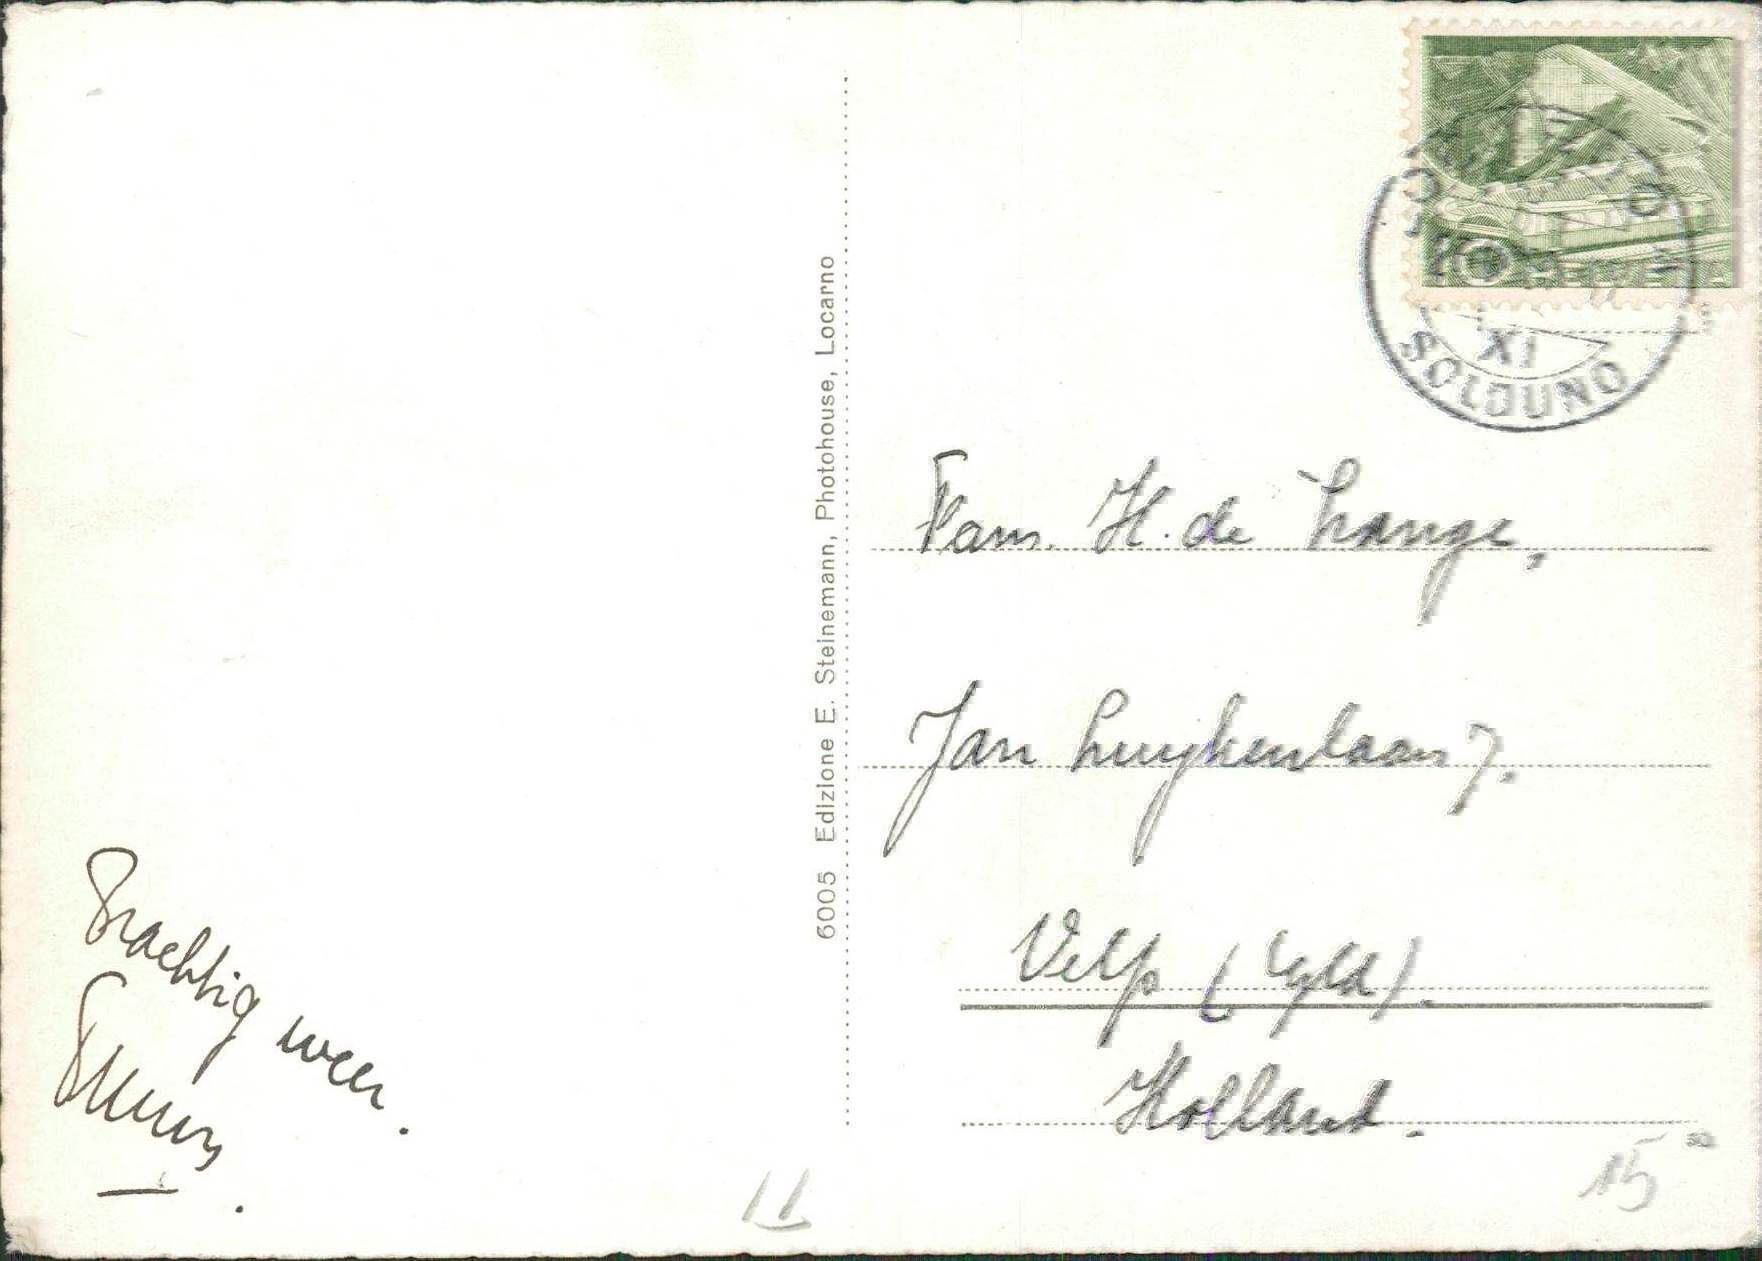 Prachtig weer.
6005 Edizione E. Steinemann, Photohouse, Locarno
HELVETIA
XI
SOLDUNO
Fam. H. de Lange,
Jan Luykenlaan 7.
Velp (Gld).
Holland.
11
15